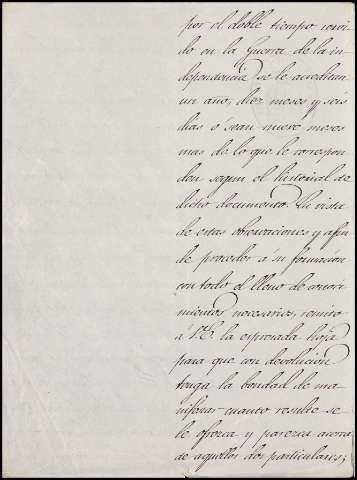 por el doble tiempo servi
do en la Guerra de la in
dependencia se le acreditan
un año, diez meses y seis
dias ó sean nueve meses
mas de lo que le correspon
den segun el historial de
dicho documento. En vista
de estas observaciones y á fin
de proceder á su formacion
con todo el lleno de conoci
mientos necesarios, remito
á V.E. la espresada hoja
para que con devolucion
tenga la bondad de ma
nifestar cuanto resulte se
le ofrezca y parezca acerca
de aquellos dos particulares;